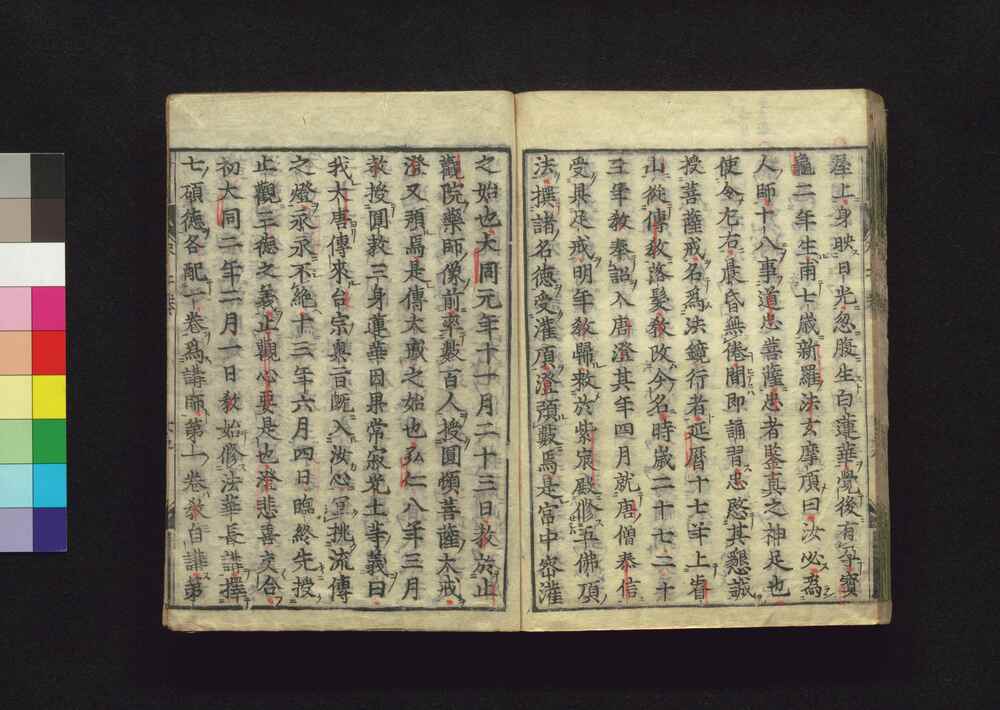 屋上身映日光忽腹生白蓮華覺後有孕寳
龜二年生甫七歳新羅法玄摩頂曰汝必爲
人師十八事道忠菩薩忠者鑒真之神足也
使令左右晨昏無倦聞即誦習忠愍其懇誠
授菩薩戒名爲法鏡行者延曆十七年上睿
山從傳敎落髮敎改今名時歳二十七二十
三年敎奉詔入唐澄其年四月就唐僧泰信
受具足戒明年敎歸敕於紫宸殿修五佛頂
法撰諸名德受灌頂澄預數焉是宮中密灌
之始也大同元年十一月二十三日敎於止
觀院藥師像前率數百人授圓頓菩薩大戒
澄又預焉是傳大戒之始也弘仁八年三月
敎授圓敎三身蓮華因果常寂光土等義曰
我大唐傳來台宗奧旨既入汝心冝挑流傳
之燈永永不絶十三年六月四日臨終先授
止觀三德之義止觀心要是也澄悲喜交合
初大同二年二月一日敎始修法華長講擇
七碩德各配一卷爲講師第一卷敎自講第